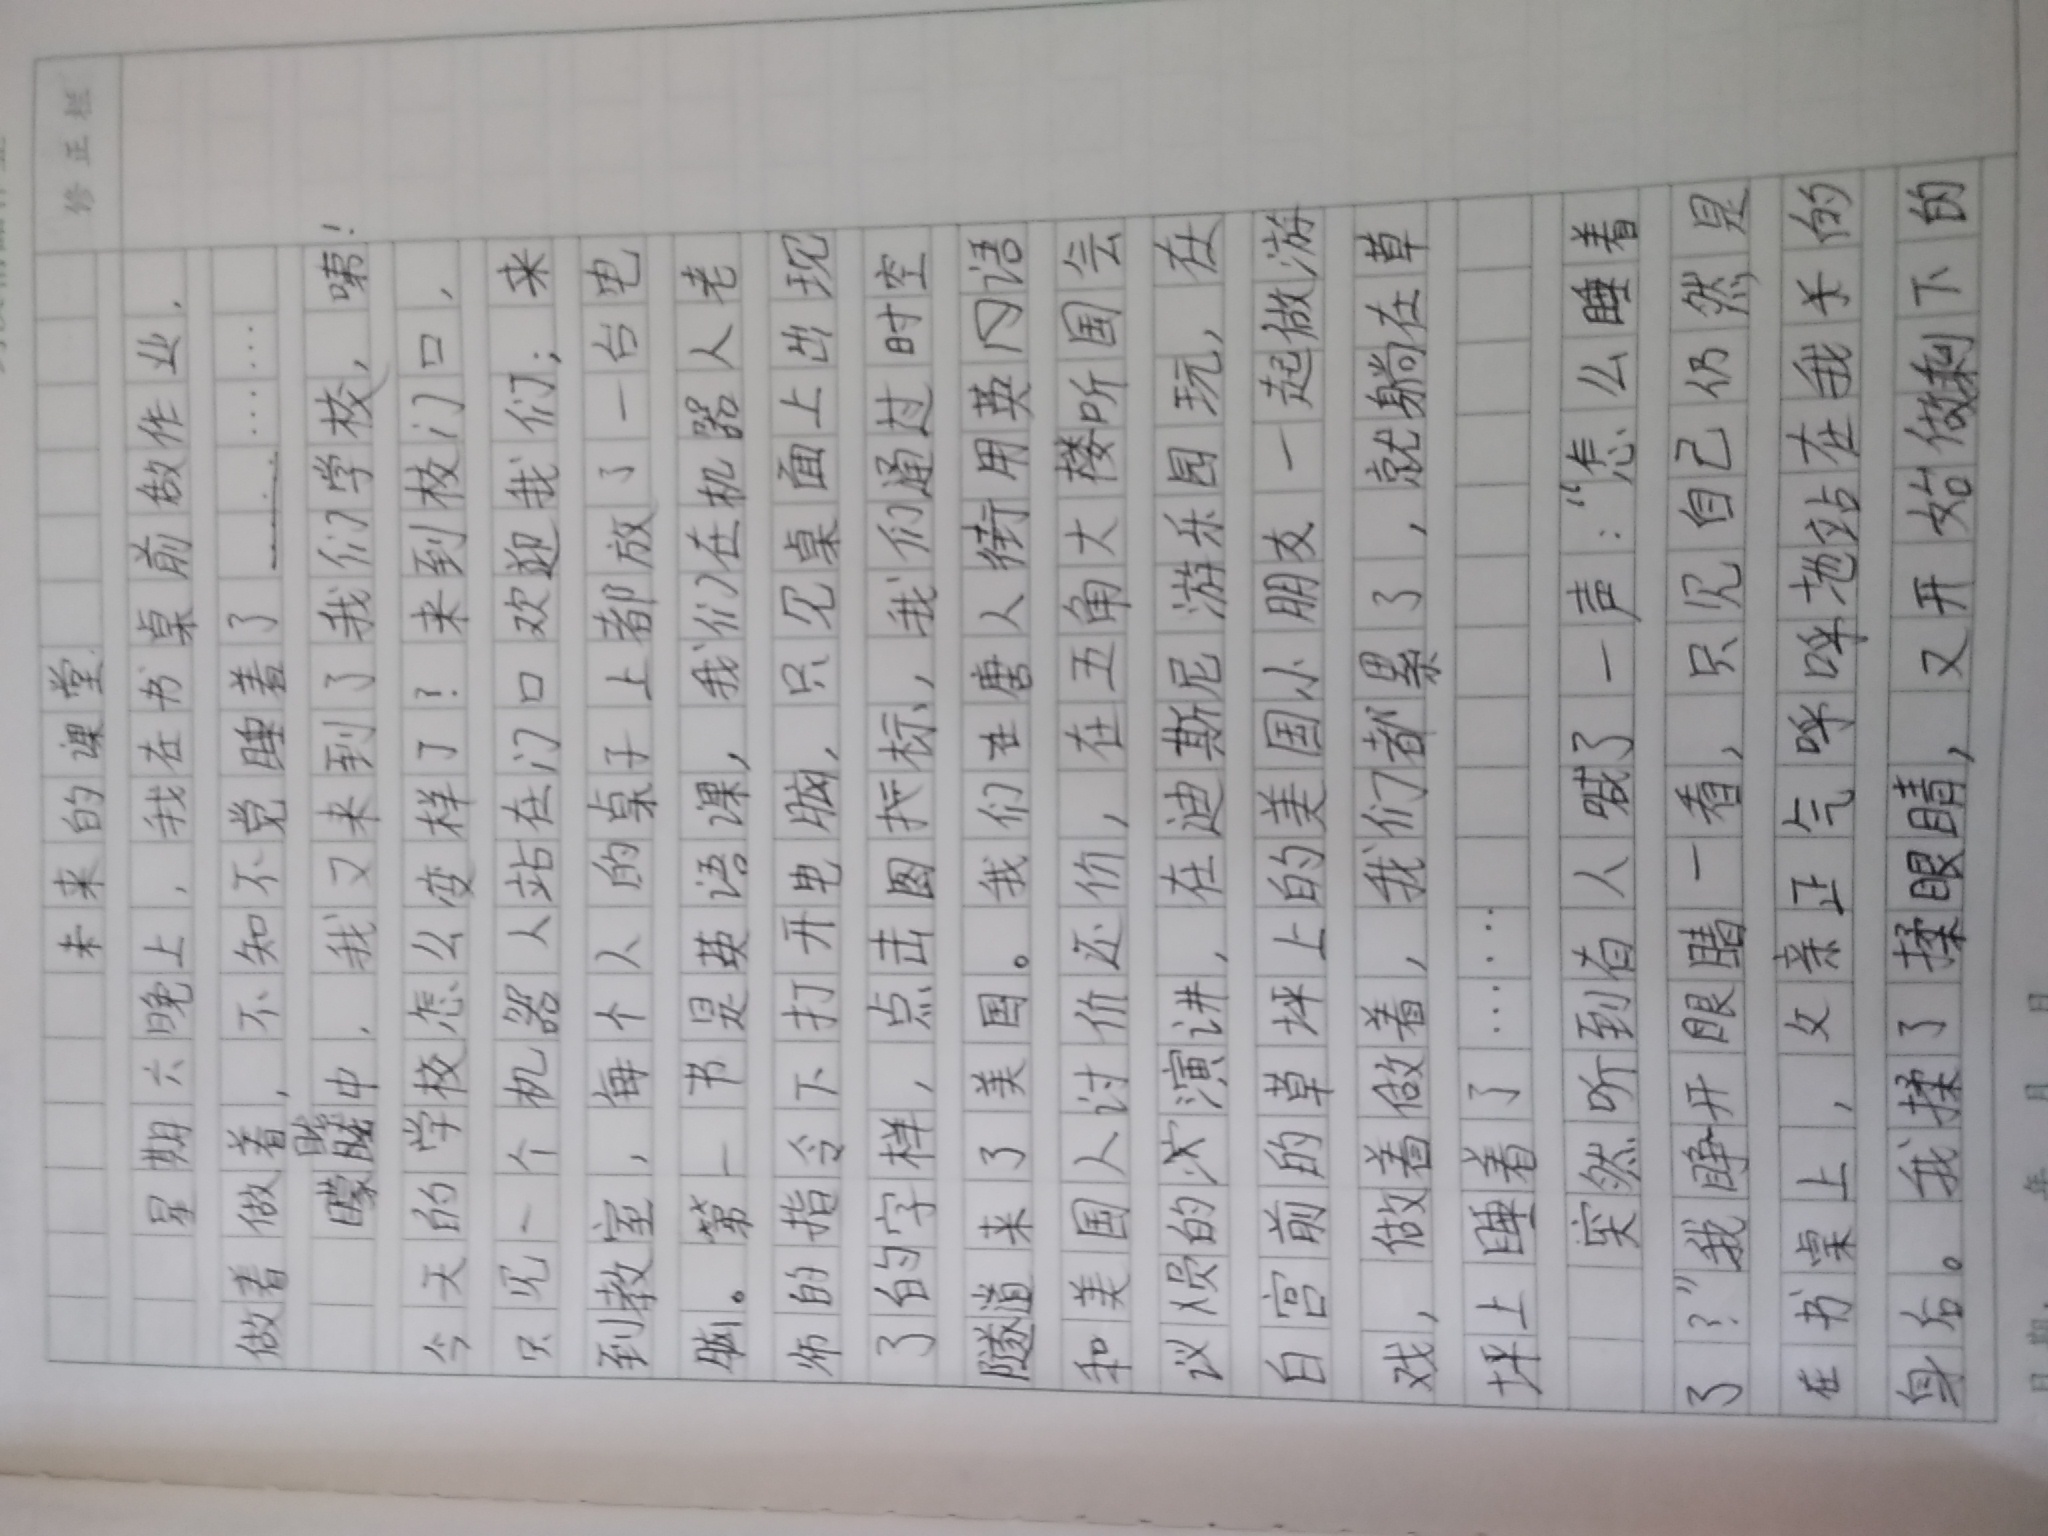 修正栏
未来的课堂
星期六晚上，我在书桌前做作业，
做着做着，不知不觉睡着了…………
朦胧中，我又来到了我们学校，嘢！
今天的学校怎么变样了？来到校门口，
只见一个机器人站在门口欢迎我们；来
到教室，每个人的桌子上都放了一台电
脑。第一书是英语课，我们在机器人老
师的指令下打开电脑，只见桌面上出现
了的字样，点击图标，我们通过时空
隧道来了美国。我们在唐人街用英闪语
和美国人讨价还价，在五角大楼听国会
议员的演讲，在迪斯尼游乐园玩，在
白宫前的草坪上的美国小朋友一起做游
戏，做着做着，我们都累了，就躺在草
坪上睡着了……
突然听到有人喊了一声：“怎么睡着
了？”我睁开眼睛一看，只见自己仍然是
在书桌上，女亲正气呼呼地站在我的
身后。我揉了揉眼睛，又开始做剩下的
日期： 年 月 日